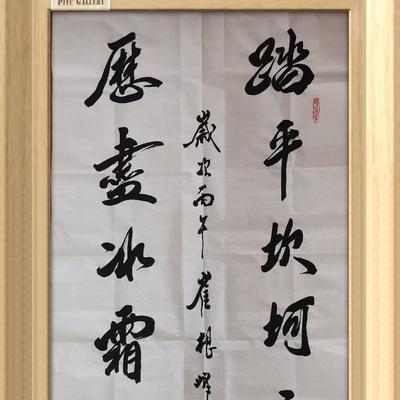 PITU GALLERY
踏平坎坷
歲次丙午崔根
歷盡冰霜